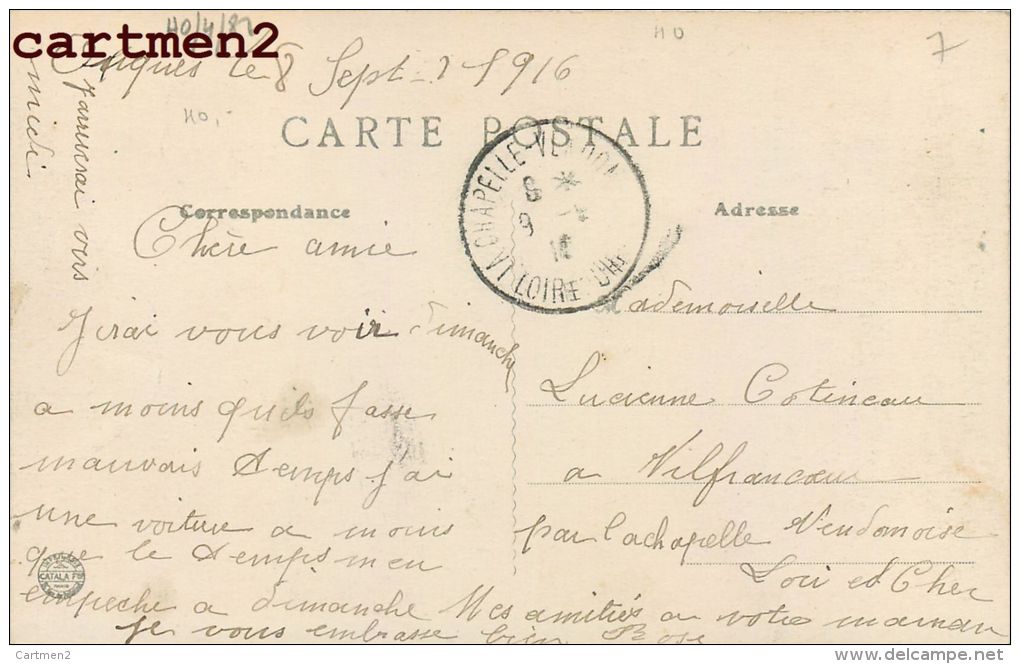 cartmen2
40/4/82
40
7
le 8 Sept 1916
40,-
CARTE POSTALE
LA CHAPELLE-VENDOM
LOIR-ET-CHER
Correspondance
Adresse
Chère amie
J'irai vous voir dimanche
a moins quils fasse
mauvais temps j'ai
une voiture a moins
que le temps men
empeche a dimanche Mes amitiés a votre maman
je vous embrasse bien Rose
J'arriverai vers
midi
Mademoiselle
Lucienne Cotineau
a Vilfrancoeur
par lachapelle Vendomoise
Loir et Cher
CATALA FRES
PARIS
Cartmen2
www.delcampe.net